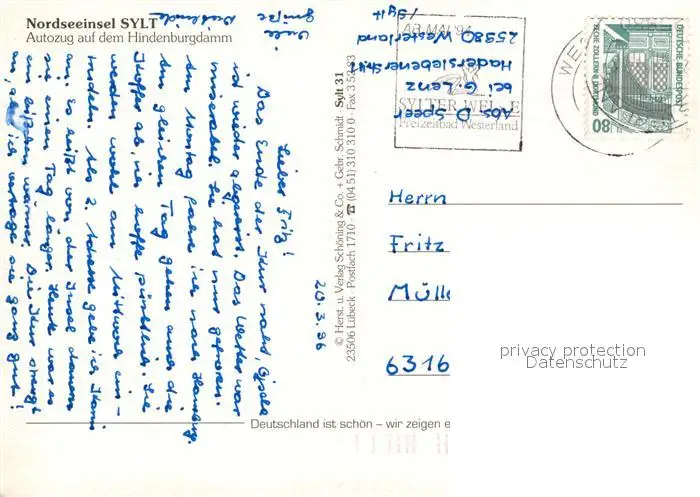 Nordseeinsel SYLT
Autozug auf dem Hindenburgdamm
20.3.96
Lieber Fritz!
Das Ende der Kur naht, Gisela
ist wieder abgereist. Das Wetter war
miserabel. Sie hat nur gefroren.
Am Montag fahre ich nach Hamburg.
Am gleichen Tag gehen auch die
Koffer ab, ich hoffe pünktlich. Sie
werden wohl am Mittwoch ein-
trudeln. Als 2. Adresse gebe ich
an. Es reist von der Insel
sie einen Tag länger. Heute war es
ein bißchen wärmer. Die Kur strengt
an, aber ich vertrage sie ganz gut!
Viele
Grüße
© Herst. u. Verlag Schöning & Co. + Gebr. Schmidt · Sylt 31
23506 Lübeck · Postfach 1710 · ☎ (04 51) 310 310 0 · Fax 3 52 83
Abs D Speer
bei G. Lenz
Haderslebener Str.
25980 Westerland
/Sylt
AB MAI '94
SYLTER WELLE
Freizeitbad Westerland
DEUTSCHE BUNDESPOST
80
Herrn
Fritz
Mülle
6316
privacy protection
Datenschutz
Deutschland ist schön – wir zeigen e